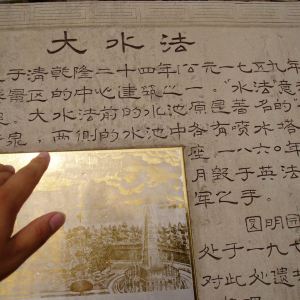 大水法
于清乾隆二十四年(公元一七五九年
景区的中心建筑之一。"水法"意
。大水法前的水池原是著名的
泉,两侧的水池中各有喷水塔
座。一八六〇年
月毁于英法
军之手。
圆明园
处于一九七
对此处遗